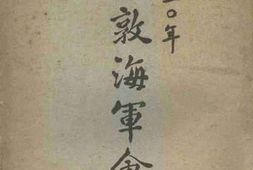 〇年
敦海軍會